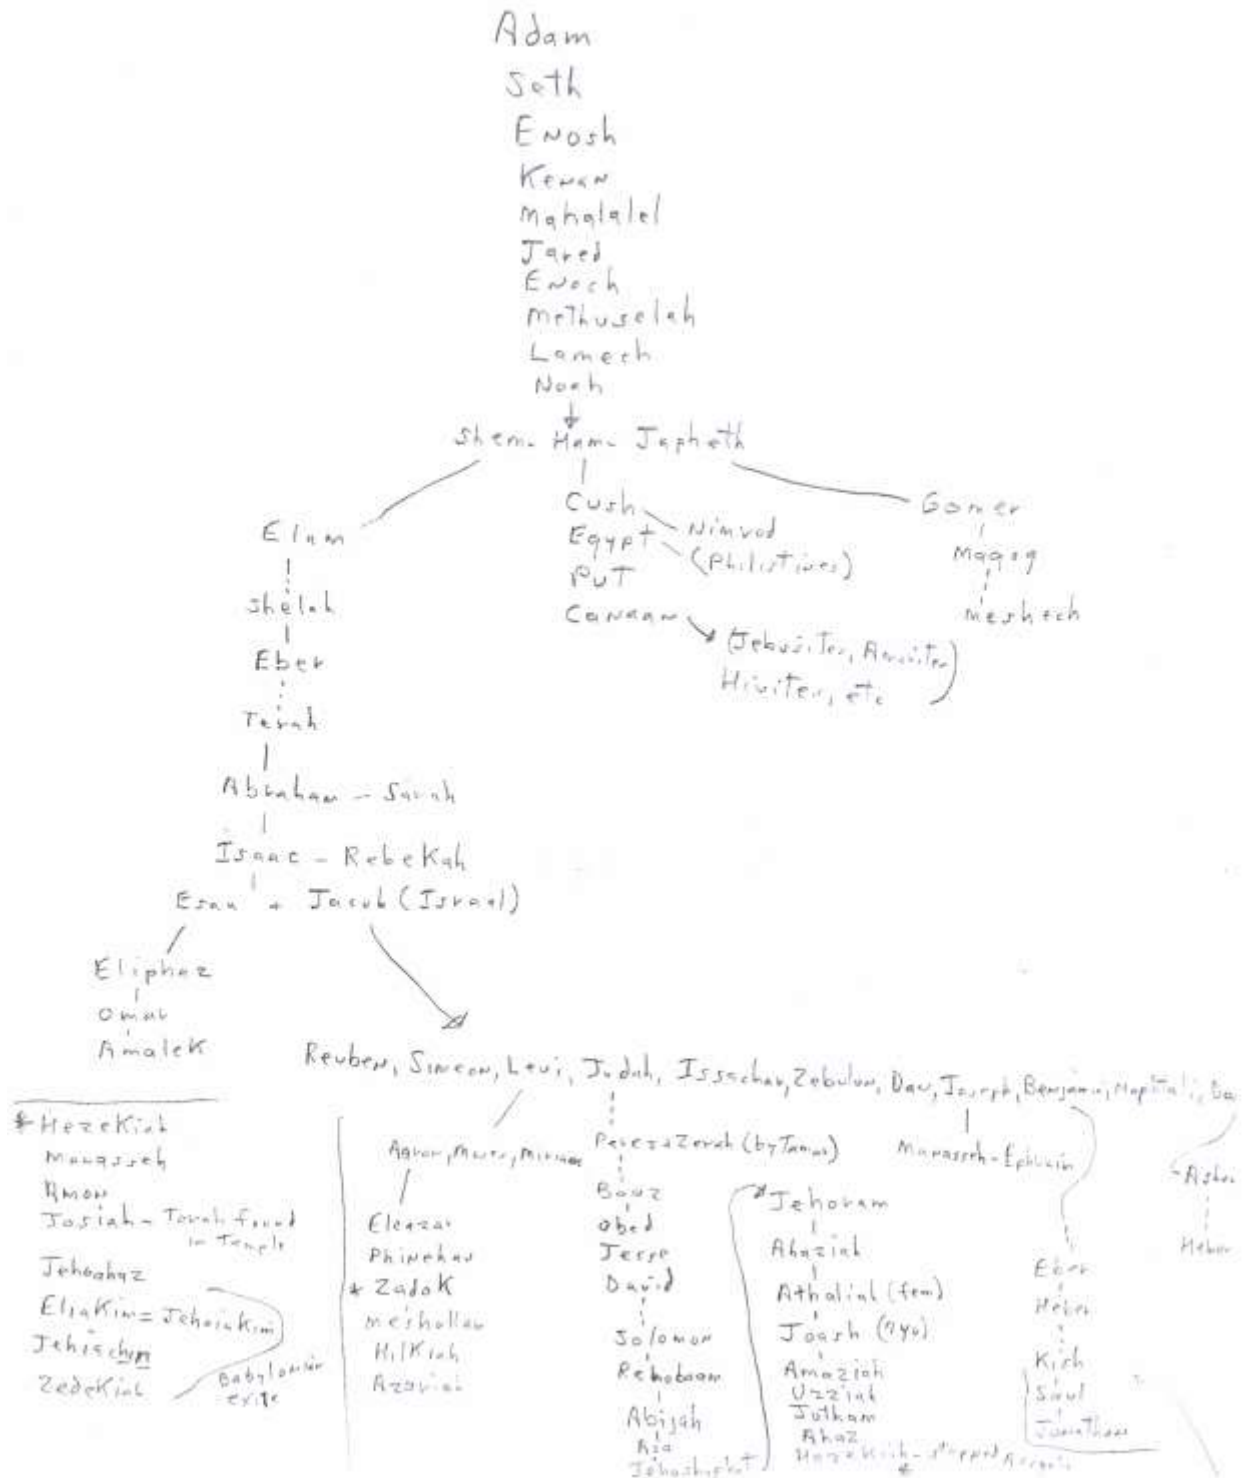 Adam
Seth
Enosh
Kenan
Mahalalel
Jared
Enoch
Methuselah
Lamech
Noah
Shem- Ham- Japheth
Elam
Shelah
Eber
Terah
Abraham - Sarah
Isaac - Rebekah
Esau + Jacob (Israel)
Eliphaz
Omar
Amalek
Cush
Nimrod
Egypt
(Philistines)
Put
Canaan
(Jebusites,
Hivites, etc
Gomer
Magog
Meshech
Reuben, Simeon, Levi, Judah, Issachar, Zebulun, Dan, Joseph, Benjamin, Naphtali,
* Hezekiah
Manasseh
Amon
Josiah - Torah found
in Temple
Jehoahaz
Eliakim = Jehoiakim
Zedekiah
Babylonian
exile
Aaron, Moses, Miriam
Eleazar
Phinehas
* Zadok
Hilkiah
Azariah
Perez + Zerah (by Tamar)
Boaz
Obed
Jesse
David
Solomon
Rehoboam
Abijah
Asa
Jehoshaphat
Jehoram
Ahaziah
Athaliah (fem)
Joash (7yo)
Amaziah
Uzziah
Jotham
Ahaz
Hezekiah - stopped
*
Manasseh - Ephraim
Eber
Heber
Kish
Saul
Jonathan
Asher
Heber